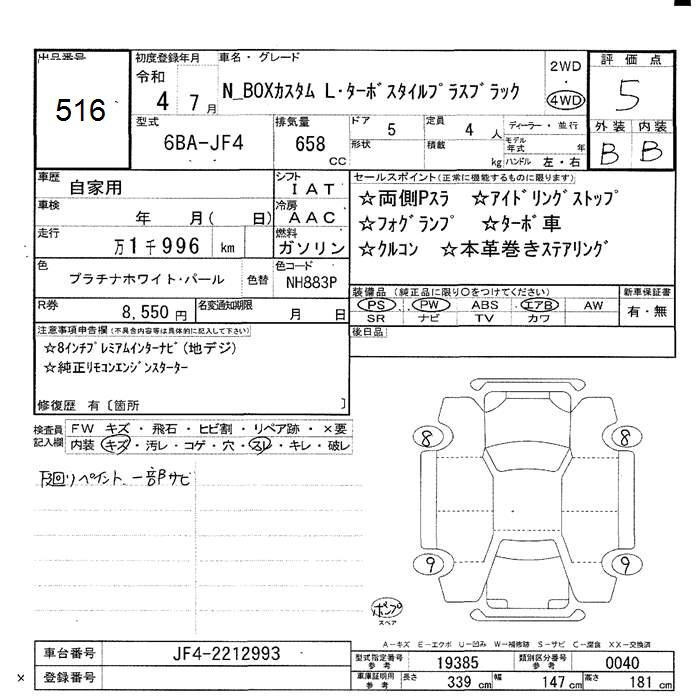 出品番号
516
初度登録年月
令和
4 7月
車名・グレード
N_BOXカスタム L・ターボスタイルプラスブラック
2WD
・
4WD
評価点
5
型式
6BA-JF4
排気量
658
cc
ドア
5
定員
4 人
形状
積載
kg
ディーラー・並行
モデル年式 年
ハンドル 左・右
外装 内装
B B
車歴
自家用
車検
年 月( 日)
走行
万1千996 km
シフト
IAT
冷房
AAC
燃料
ガソリン
セールスポイント(正常に機能するものに限ります)
☆両側Pスラ ☆アイドリングストップ
☆フォグランプ ☆ターボ車
☆クルコン ☆本革巻きステアリング
色
プラチナホワイト・パール
色替
色コード
NH883P
装備品(純正品に限り○をつけてください)
PS PW ABS エアB AW
SR ナビ TV カワ
新車保証書
有・無
R券
8,550円
名変通知期限
月 日
後日品
注意事項申告欄(不具合内容等は具体的に記入して下さい)
☆8インチプレミアムインターナビ(地デジ)
☆純正リモコンエンジンスターター
修復歴 有〔箇所 〕
検査員記入欄
FW キズ・飛石・ヒビ割・リペア跡・×要
内装・キズ・汚レ・コゲ・穴・スレ・キレ・破レ
下回りペイント 一部サビ
8 8
9 9
ポンプ
スペア
A-キズ E-エクボ U-凹み W-補修跡 S-サビ C-腐食 XX-交換済
車台番号
JF4-2212993
登録番号
×
型式指定番号
参考
19385
類別区分番号
参考
0040
車庫証明用
参考
長さ 339 cm 幅 147 cm 高さ 181 cm